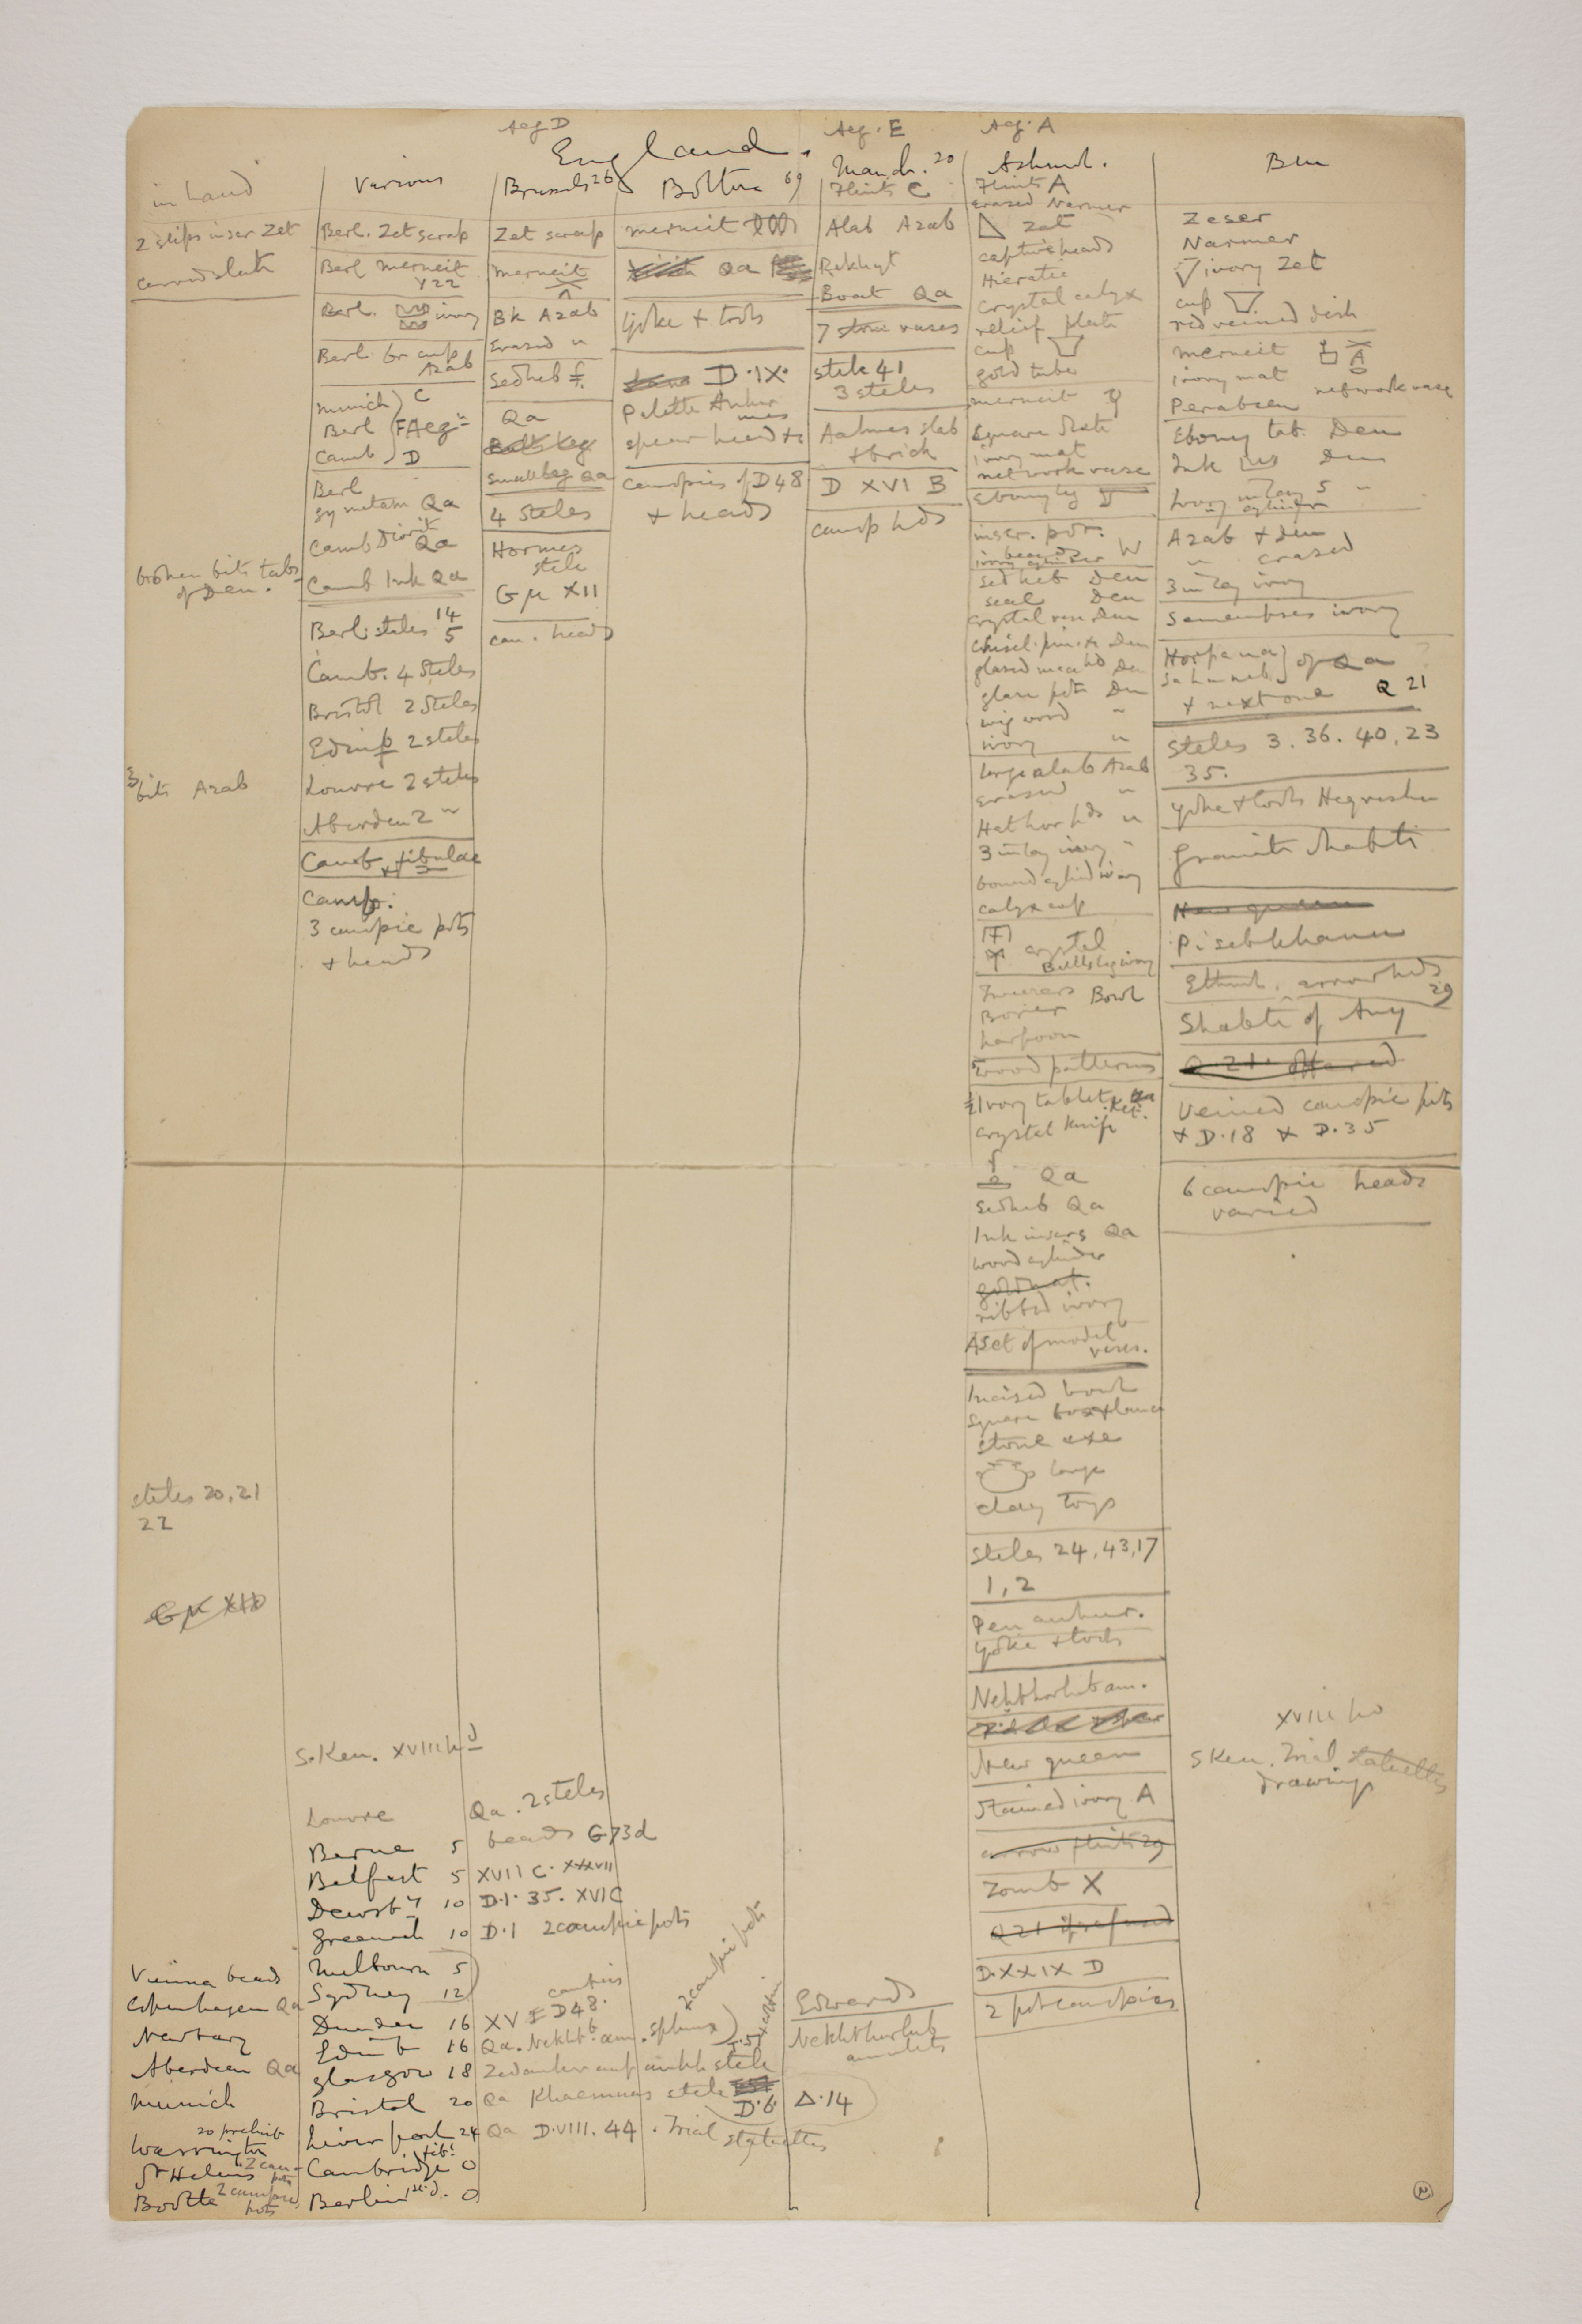 England.
in hand
2 slips inscr Zet
carved slate
broken bits tabs
of Den.
3 bits Azab
steles 20, 21
22
GM XII
Various
Berl. Zet scrap
Berl Merneit
Y22
Berl. ivory
Berl. br cup
Azab
Munich C
Berl F Aeg
Camb D
Berl
Qa
Camb Diorit
Qa
Camb Ink Qa
Berl. steles 14
5
Camb. 4 Steles
Bristol 2 Steles
Edinb 2 steles
Louvre 2 steles
Aberdeen 2 "
Camb fibulae
Camb.
3 canopic pots
+ heads
Aeg D
Brussels 26
Zet scrap
Merneit
Bk Azab
Erased "
Sedheb
Qa
Bulls leg
small leg Qa
4 Steles
Hormes
stele
GM XII
can. heads
Bolton 69
Merneit
Qa
Yoke + tools
D.IX.
Palette Anhur
mes
spear head &c
canopics of D48
+ heads
Aeg. E
Manch. 20
Flints C
Alab Azab
Rekhyt
Boat Qa
7 stone vases
stele 41
3 steles
Aahmes slab
+ brick
D XVI B
canop hds
Aeg. A
Ashmol.
Flints A
Erased Narmer
Zet
captive heads
Hieratic
crystal calyx
relief plate
cup
gold tube
Merneit
Square Slate
ivory mat
network vase
Ebony leg
inscr. pot.
ivory cylinder
sed heb Den
seal Den
crystal vase Den
chisel. pin. &c Den
glazed meached Den
glaze pots Den
wig wood "
ivory "
large alab Azab
erased "
Hathor hds "
3 inlay ivory "
bound cylind ivory
calyx cup
crystal
Bulls leg ivory
Tweezers Bowl
Borer
harpoon
5 wood patterns
Ivory tablets Qa
Ket.
crystal knife
Qa
Sedheb Qa
Ink inscrs Qa
wood cylinder
gold mat.
ribbed ivory
A Set of model
vases.
Incised bowl
square box + lance
stone axe
large
clay toys
Steles 24, 43, 17
1, 2
Pen anhur.
Yoke + tools
Nekhthorheb am.
New queen
Stained ivory A
arrow flints 29
Tomb X
Q 21 if refused
D. XXIX D
2 pot canopics
BM
Zeser
Narmer
ivory Zet
cup
red veined dish
Merneit
ivory mat network vase
Perabsen
Ebony tab. Den
Ink ins Den
Ivory inlay 5 "
" cylinder
Azab + Den
" erased
3 inlay ivory
Semempses ivory
Horpe ua
Sa hu neb of Qa ?
+ next one Q 21
steles 3. 36. 40, 23
35.
yoke + tools Heqreshu
Granite shabti
New queen
Pisebkhanu
Ethnol. arrow heds
29
Shabti of Any
Q. 21. Offered
Veined canopic pots
+ D.18 + D.35
6 canopic heads
varied
XVIII hd
S Ken. Trial statuettes
drawings
S. Ken. XVIII hd
Louvre Qa. 2 steles
Berne 5 beads G73d
Belfast 5 XVII C. XXXVII
Dewsby 10 D.1. 35. XVI C
Greenock 10 D.1 2 canopic pots
Melbourn 5
Sydney 12
Dundee 16 XV I D48. canopics
Edinb 16 Qa. Nekhtb. am. sphinx
2 canopic pots
Glasgow 18 Zedankhauf ankh stele
Bristol 20 Qa Khaemuas stele
D.6 Δ.14
Liverpool 24 Qa D.VIII. 44. Trial statuettes
Cambridge fib: 0
Berlin 0
Edwards
Nekhthorheb
amulets
Vienna beads
Copenhagen Qa
Newbury
Aberdeen Qa
Munich
20 prehist
Warrington
St Helens 2 can. pots
Bootle 2 canopic pots
N